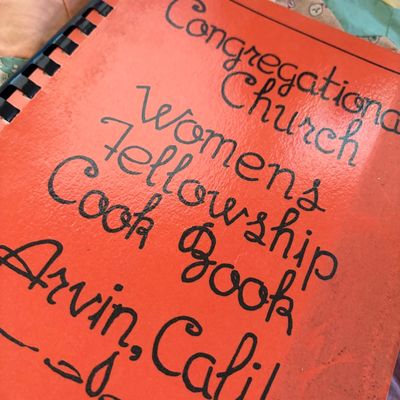 Congregational
Church
Womens
Fellowship
Cook Book
Arvin, Calif